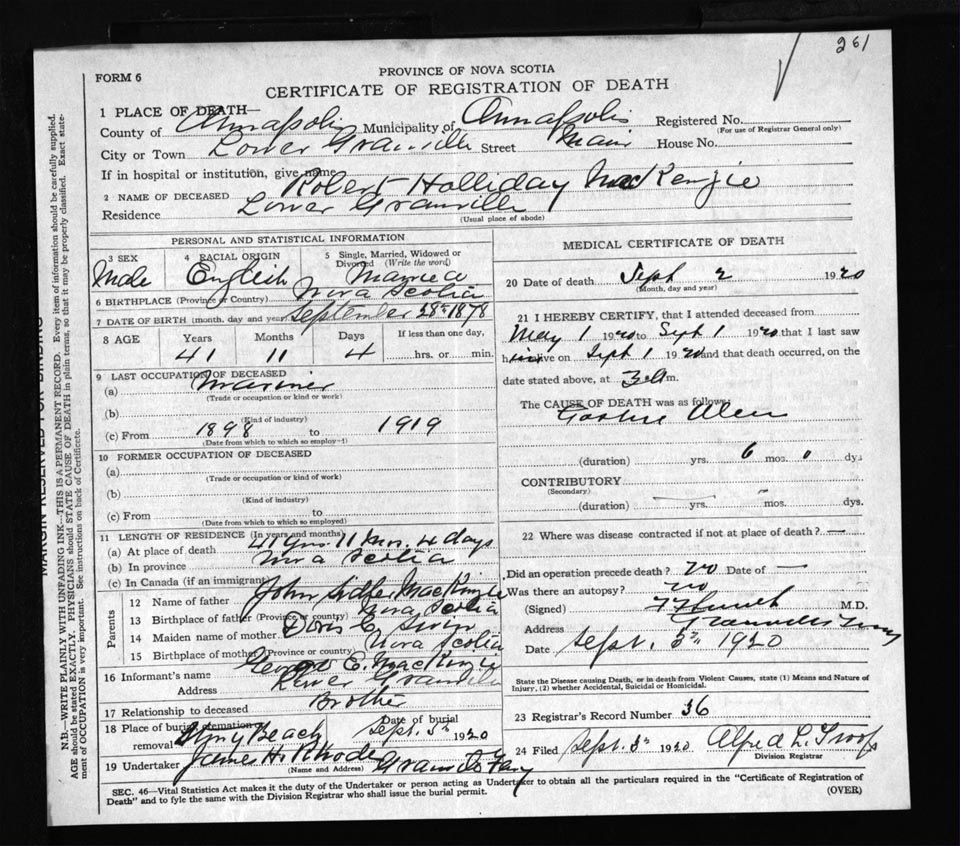 261
FORM 6
PROVINCE OF NOVA SCOTIA
CERTIFICATE OF REGISTRATION OF DEATH
1 PLACE OF DEATH—
County of Annapolis Municipality of Annapolis Registered No.
(For use of Registrar General only)
City or Town Lower Granville Street Main House No.
If in hospital or institution, give name
2 NAME OF DECEASED Robert Holliday MacKenzie
Residence Lower Granville
(Usual place of abode)
PERSONAL AND STATISTICAL INFORMATION
3 SEX 4 RACIAL ORIGIN 5 Single, Married, Widowed or Divorced (Write the word)
Male English Married
6 BIRTHPLACE (Province or Country) Nova Scotia
7 DATE OF BIRTH (month, day and year) September 28th 1878
8 AGE Years Months Days If less than one day,
41 11 4 hrs. or min.
9 LAST OCCUPATION OF DECEASED
(a) Mariner
(Trade or occupation or kind or work)
(b)
(Kind of industry)
(c) From 1898 to 1919
(Date from which to which so employed)
10 FORMER OCCUPATION OF DECEASED
(a)
(Trade or occupation or kind of work)
(b)
(Kind of industry)
(c) From to
(Date from which to which so employed)
11 LENGTH OF RESIDENCE (In years and months)
(a) At place of death 41 yrs. 11 mos. 4 days
(b) In province Nova Scotia
(c) In Canada (if an immigrant)
Parents
12 Name of father John MacKenzie
13 Birthplace of father (Province or country) Nova Scotia
14 Maiden name of mother
15 Birthplace of mother (Province or country) Nova Scotia
16 Informant's name E. MacKenzie
Address Lower Granville
17 Relationship to deceased Brother
18 Place of burial, cremation or removal Stony Beach Date of burial Sept. 5th 1920
19 Undertaker James H. Rhodes Granville Ferry
(Name and Address)
MEDICAL CERTIFICATE OF DEATH
20 Date of death Sept 2 1920
(Month, day and year)
21 I HEREBY CERTIFY, that I attended deceased from
May 1 1920 to Sept 1 1920 that I last saw
him alive on Sept 1 1920 and that death occurred, on the
date stated above, at 3 a m.
The CAUSE OF DEATH was as follows:
Gastric Ulcer
(duration) yrs. 6 mos. 0 dys
CONTRIBUTORY
(Secondary)
(duration) yrs. mos. dys.
22 Where was disease contracted if not at place of death? —
Did an operation precede death? no Date of —
Was there an autopsy? no
(Signed) M.D.
Address Granville Ferry
Date Sept. 1920
State the Disease causing Death, or in death from Violent Causes, state (1) Means and Nature of
Injury, (2) whether Accidental, Suicidal or Homicidal.
23 Registrar's Record Number 36
24 Filed Sept. 1920 Alfred L. Troop
Division Registrar
SEC. 46—Vital Statistics Act makes it the duty of the Undertaker or person acting as Undertaker to obtain all the particulars required in the "Certificate of Registration of
Death" and to fyle the same with the Division Registrar who shall issue the burial permit.
(OVER)
N.B.—WRITE PLAINLY WITH UNFADING INK—THIS IS A PERMANENT RECORD. Every item of information should be carefully supplied.
AGE should be stated EXACTLY. PHYSICIANS should STATE CAUSE OF DEATH in plain terms, so that it may be properly classified. Exact state-
ment of OCCUPATION is very important. See instructions on back of Certificate.
MARGIN RESERVED FOR BINDING